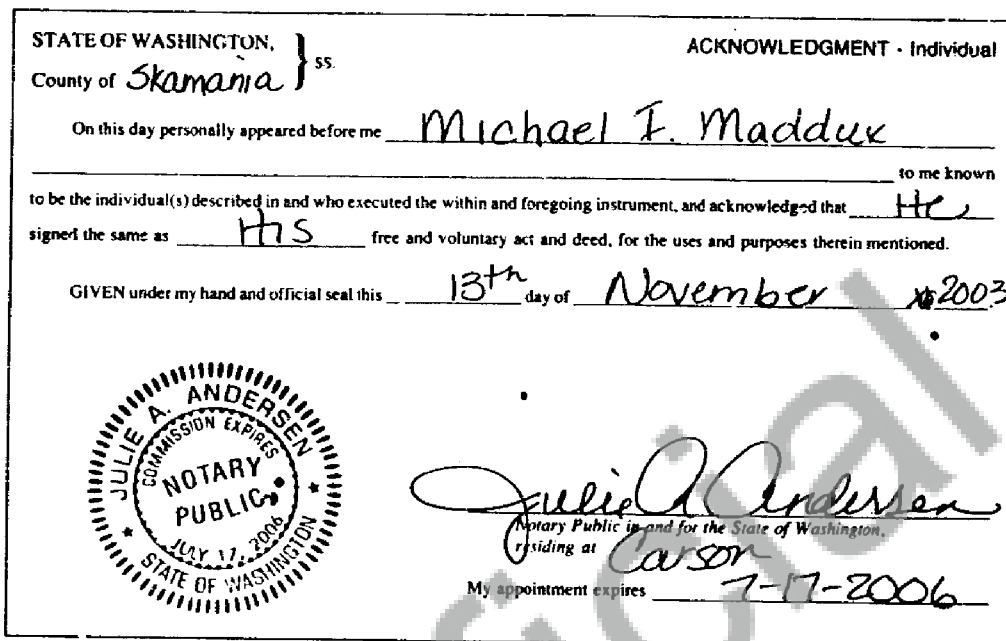 STATE OF WASHINGTON,
County of Skamania } ss.
ACKNOWLEDGMENT - Individual
On this day personally appeared before me Michael I. Maddux
to me known
to be the individual(s) described in and who executed the within and foregoing instrument, and acknowledged that He
signed the same as His free and voluntary act and deed, for the uses and purposes therein mentioned.
GIVEN under my hand and official seal this 13th day of November 2003
JULIE A. ANDERSEN
COMMISSION EXPIRES
NOTARY
PUBLIC
JULY 17, 2006
STATE OF WASHINGTON
Julie A Andersen
Notary Public in and for the State of Washington,
residing at Carson
My appointment expires 7-17-2006